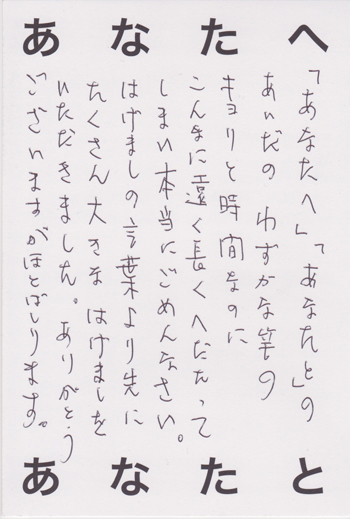 あなたへ
「あなたへ」「あなたとの
あいだの わずかな筈の
キョリと時間なのに
こんなに遠く長くへだたって
しまい本当にごめんなさい。
はげましの言葉より先に
たくさん大きな はげましを
いただきました。ありがとう
ございますがほとばしります。
あなたと